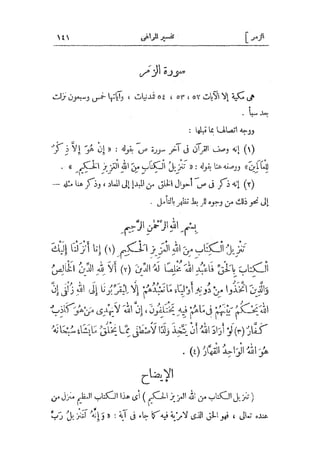 الزمر ] تفسير المراغى ١٤١
سورة الزمر
هى مكية إلا الآيات ٥٢ ، ٥٣ ، ٥٤ فمدنيات ، وآياتها خمس وسبعون نزلت
بعد سبأ .
ووجه اتصالها بما قبلها :
(١) إنه وصف القرآن فى آخر سورة ص بقوله : « إِنْ هُوَ إِلَّا ذِكْرٌ
لِلْعَالَمِينَ » ووصفه هنا بقوله : « تَنْزِيلُ الْكِتَابِ مِنَ اللهِ الْعَزِيزِ الْحَكِيمِ » .
(٢) إنه ذكر فى ص أحوال الخلق من المبدإ إلى المعاد ، وذكر هنا مثله –
إلى نحو ذلك من وجوه للربط تظهر بالتأمل .
بِسْمِ اللهِ الرَّحْمنِ الرَّحِيمِ
تَنْزِيلُ الْكِتَابِ مِنَ اللهِ الْعَزِيزِ الْحَكِيمِ (١) إِنَّا أَنْزَلْنَا إِلَيْكَ
الْكِتَابَ بِالْحَقِّ فَاعْبُدِ اللهَ مُخْلِصًا لَهُ الدِّينَ (٢) أَلَا لِلهِ الدِّينُ الْخَالِصُ
وَالَّذِينَ اتَّخَذُوا مِنْ دُونِهِ أَوْلِيَاءَ مَا نَعْبُدُهُمْ إِلَّا لِيُقَرِّبُونَا إِلَى اللهِ زُلْفَى إِنَّ
اللهَ يَحْكُمُ بَيْنَهُمْ فِى مَا هُمْ فِيهِ يَخْتَلِفُونَ، إِنَّ اللهَ لَا يَهْدِى مَنْ هُوَ كَاذِبٌ
كَفَّارٌ (٣) لَوْ أَرَادَ اللهُ أَنْ يَتَّخِذَ وَلَدًا لَاصْطَفَى مِمَّا يَخْلُقُ مَا يَشَاءُ سُبْحَانَهُ
هُوَ اللهُ الْوَاحِدُ الْقَهَّارُ (٤) .
الإيضاح
( تنزيل الكتاب من الله العزيز الحكيم ) أى هذا الكتاب العظيم منزل من
عنده تعالى ، فهو الحق الذى لا مرية فيه كما جاء فى آية : « وَإِنَّهُ لَتَنْزِيلُ رَبِّ